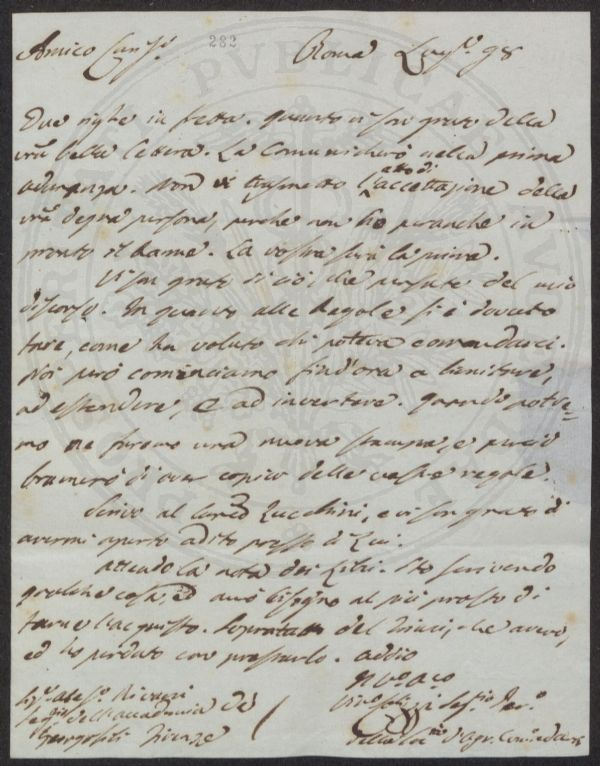 282
Amico Cariss.º Roma Lug.º 98
Due righe in fretta. Quanto vi son grato della
vr̃a bella lettera. La comunicherò nella prima
adunanza. Non vi trasmetto l'accettazione della
atto di
vr̃a degna persona, perchè non ho peranche in
pronto il Rame. La vostra sarà la prima.
Vi son grato di ciò, che pensate del mio
discorso. In quanto alle Regole si è dovuto
fare, come ha voluto chi poteva comandarci.
Noi però cominciamo find'ora a limitare,
ad estendere, e ad invertere. Quando potre=
mo ne faremo una nuova stampa, e perciò
bramerò di aver copia delle vostre regole.
Scrivo al Zucchini, e vi son grato di
avermi aperto adito presso di Lui.
Attendo la nota dei Libri. Sto scrivendo
qualche cosa, ed avrò bisogno al più presto di
farne l'acquisto. del che avevo,
ed ho perduto con prestarlo. Addio
Seg.rio dell'Accademia de
Georgofili Firenze